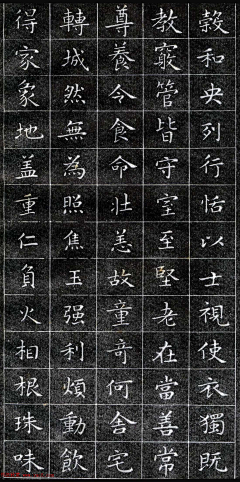 穀和央列行恬以士視使衣獨既
教竅管皆守室至堅老在當善常
尊養令食命壯恙故童奇何舍宅
轉城然無為照焦玉强利煩動飲
得家象地盖重仁負火相根珠味